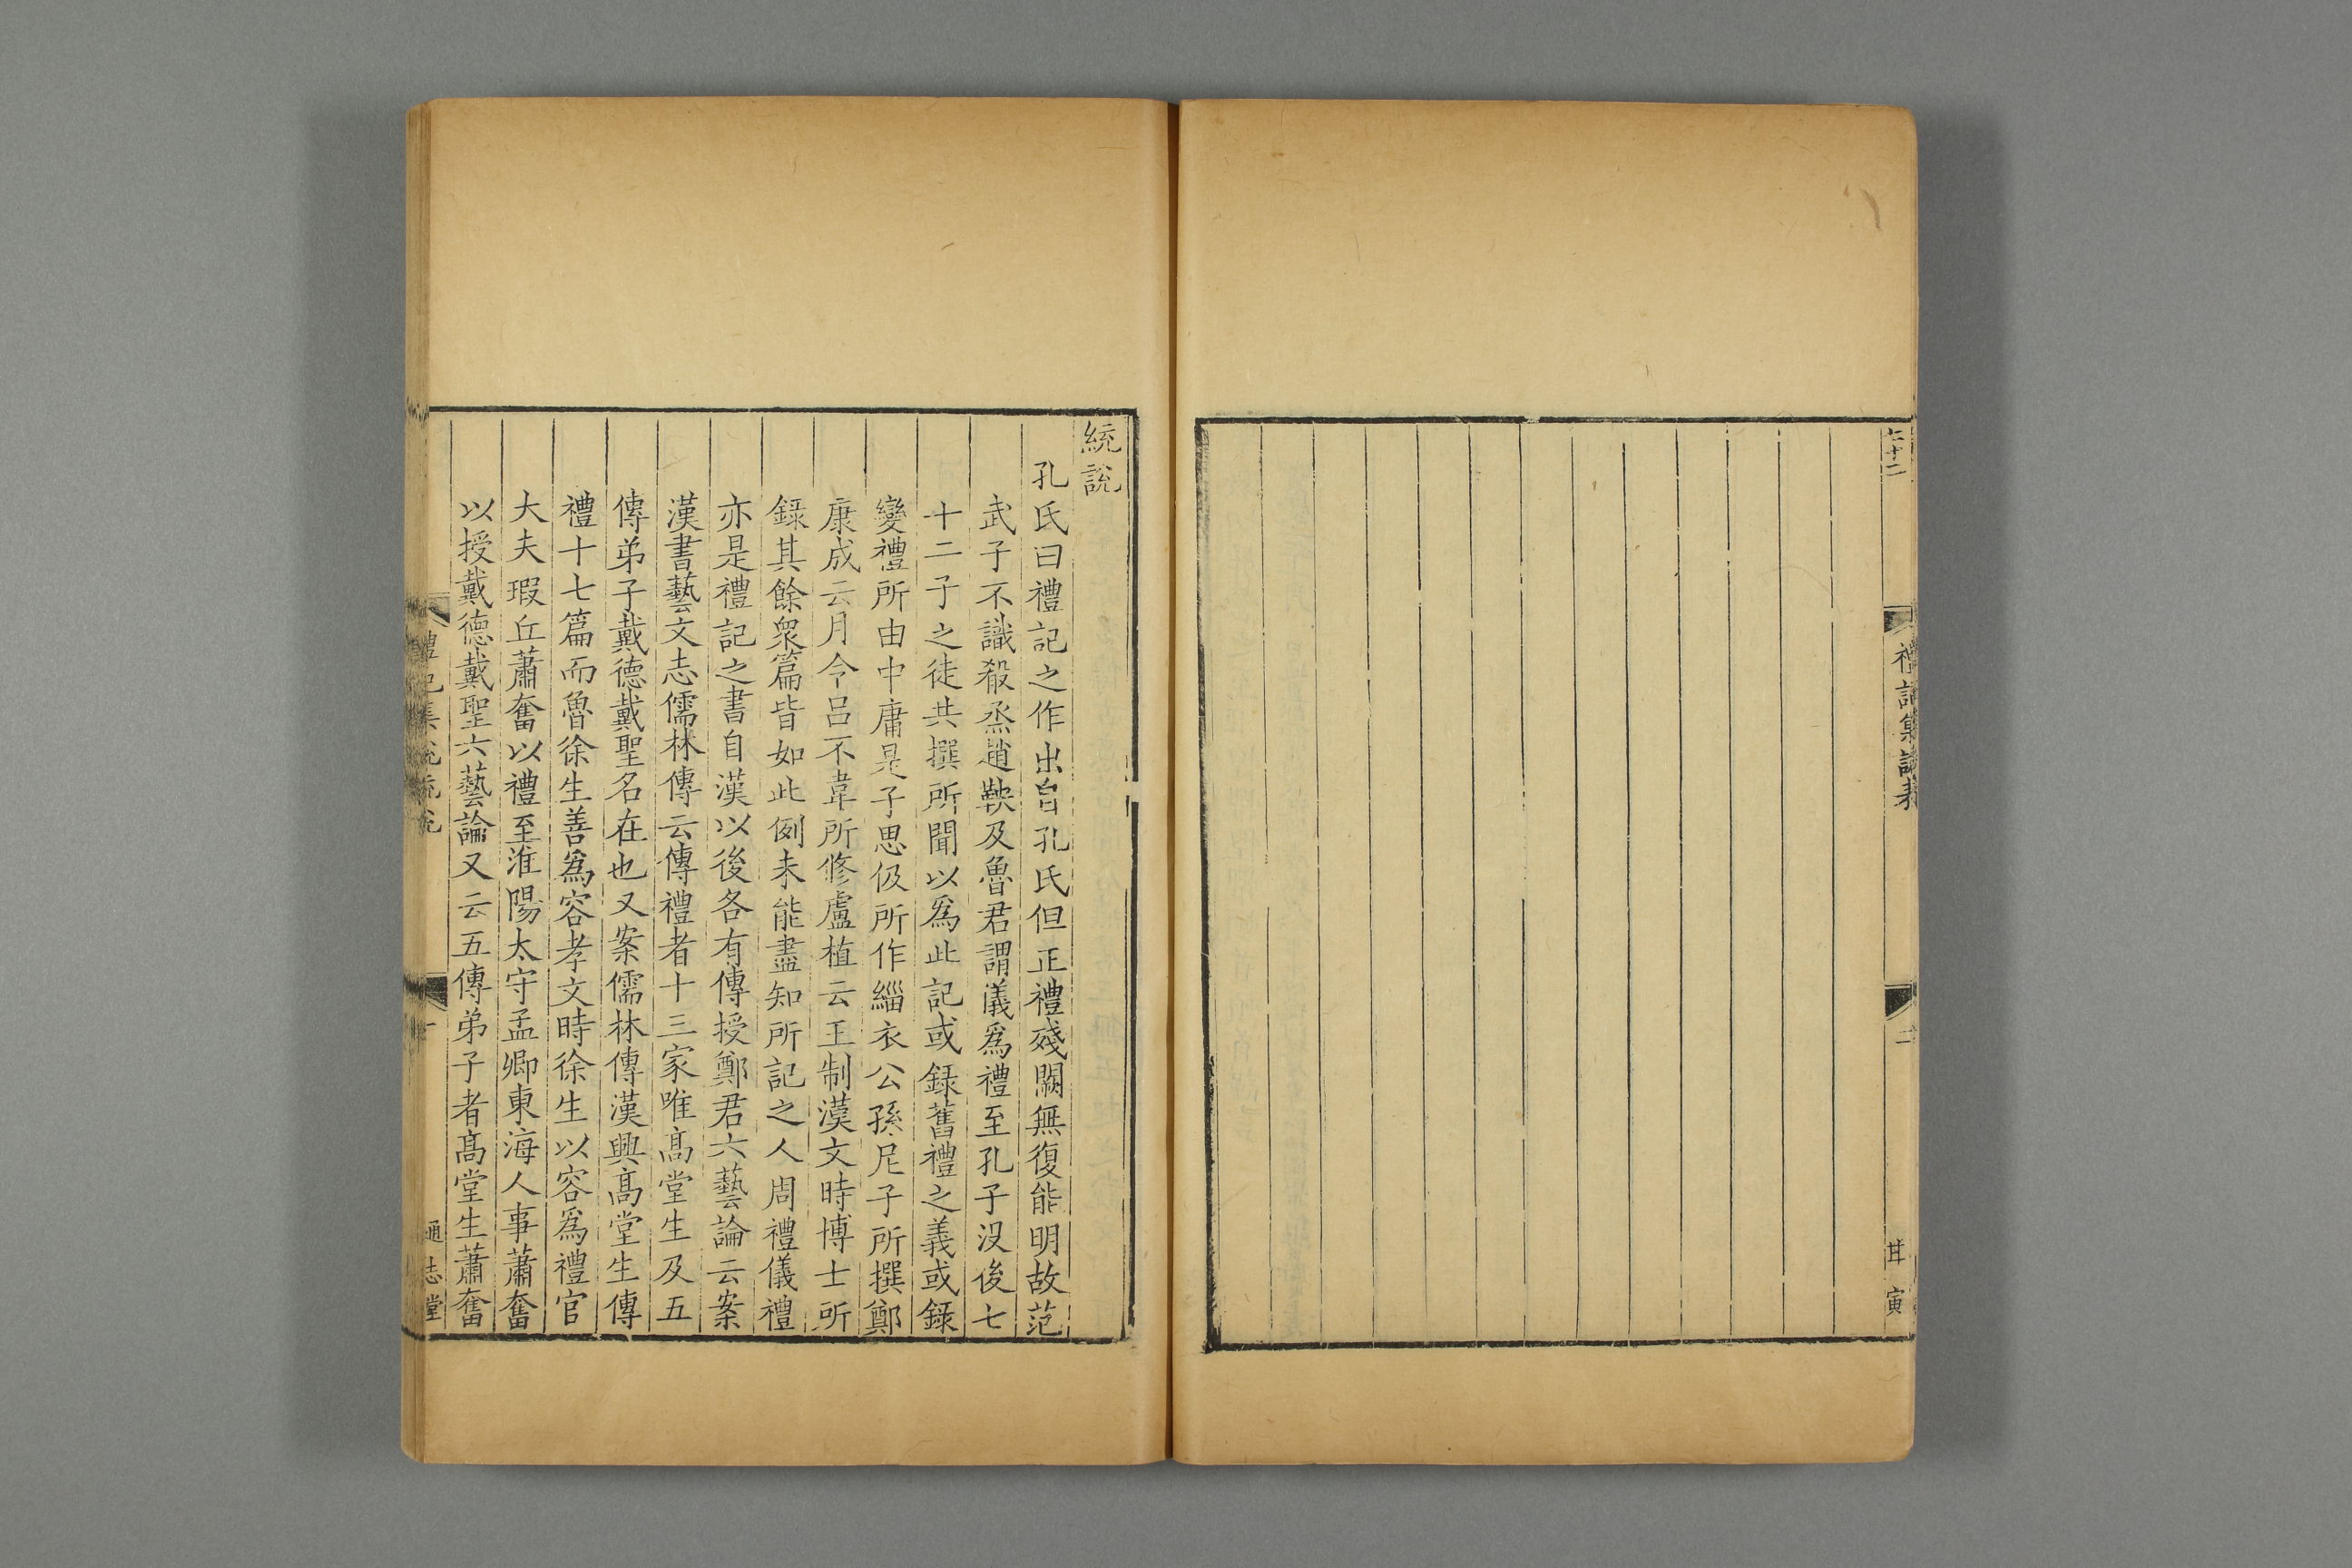 七十二
禮記集說表
二
甘寅
統說
孔氏曰禮記之作出自孔氏但正禮殘闕無復能明故范
武子不識殽烝趙鞅及魯君謂儀爲禮至孔子沒後七
十二子之徒共撰所聞以爲此記或録舊禮之義或録
變禮所由中庸是子思伋所作緇衣公孫尼子所撰鄭
康成云月令呂不韋所修盧植云王制漢文時博士所
録其餘衆篇皆如此例未能盡知所記之人周禮儀禮
亦是禮記之書自漢以後各有傳授鄭君六藝論云案
漢書藝文志儒林傳云傳禮者十三家唯髙堂生及五
傳弟子戴德戴聖名在也又案儒林傳漢興髙堂生傳
禮十七篇而魯徐生善爲容孝文時徐生以容爲禮官
大夫瑕丘蕭奮以禮至淮陽太守孟卿東海人事蕭奮
以授戴德戴聖六藝論又云五傳弟子者髙堂生蕭奮
禮記集說統說
一
通志堂